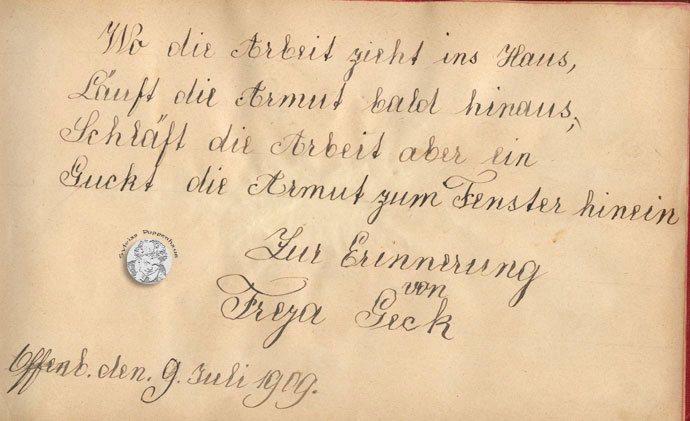 Wo die Arbeit zieht ins Haus,
Läuft die Armut bald hinaus,
Schläft die Arbeit aber ein
Guckt die Armut zum Fenster hinein
Sylvias Puppenhaus
Zur Erinnerung
von
Freya Geck
Offenb. den. 9. Juli 1909.